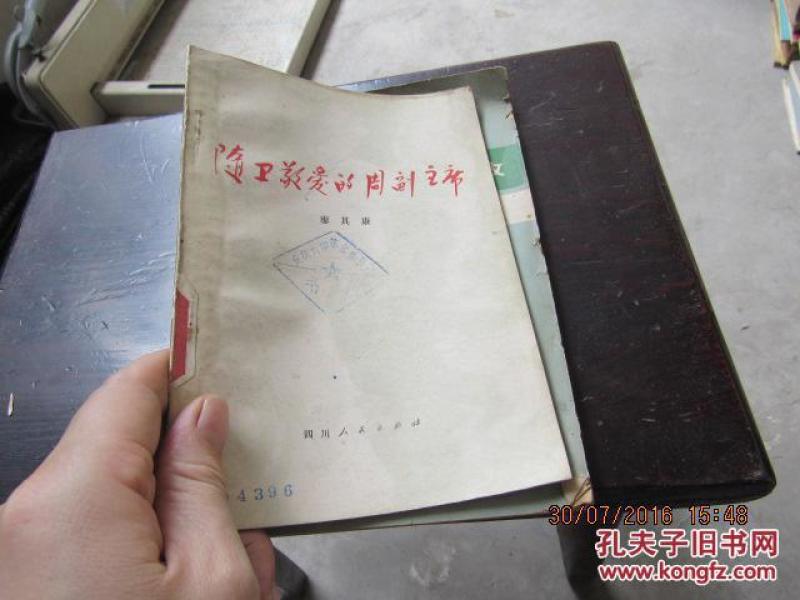 随卫敬爱的周副主席
廖其康
四川人民出版社
4396
30/07/2016 15:48
孔夫子旧书网
www.kongfz.com